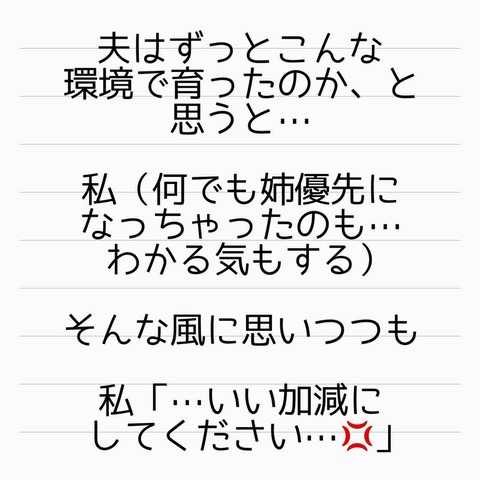 夫はずっとこんな
環境で育ったのか、と
思うと…
私（何でも姉優先に
なっちゃったのも…
わかる気もする）
そんな風に思いつつも
私「…いい加減に
してください…💢」